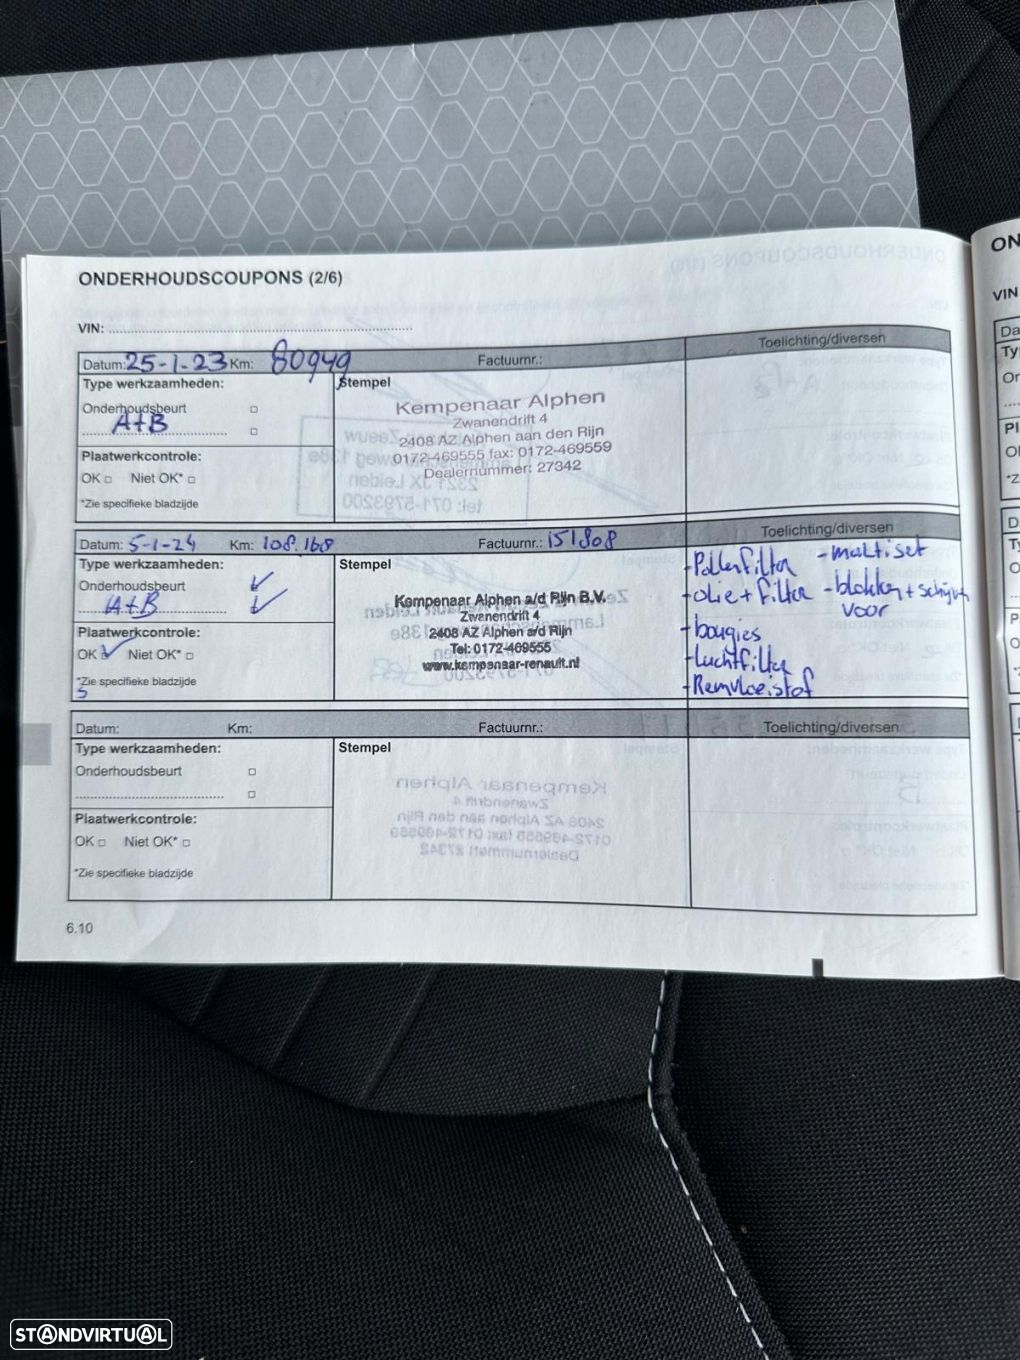 ONDERHOUDSCOUPONS (2/6)
VIN:
Datum: 25-1-23 Km: 80949 Factuurnr.: Toelichting/diversen
Type werkzaamheden: Stempel
Onderhoudsbeurt
A+B
Plaatwerkcontrole:
OK Niet OK*
*Zie specifieke bladzijde
Kempenaar Alphen
Zwanendrift 4
2408 AZ Alphen aan den Rijn
0172-469555 fax: 0172-469559
Dealernummer: 27342
Datum: 5-1-24 Km: 108.168 Factuurnr.: 151808 Toelichting/diversen
Type werkzaamheden: Stempel
Onderhoudsbeurt
A+B
Plaatwerkcontrole:
OK Niet OK*
*Zie specifieke bladzijde
5
Kempenaar Alphen a/d Rijn B.V.
Zwanendrift 4
2408 AZ Alphen a/d Rijn
Tel: 0172-469555
www.kempenaar-renault.nl
-Pollenfilter -multiset
-olie + filter -blokken + schijven
voor
-bougies
-Luchtfilter
-Remvloeistof
Datum: Km: Factuurnr.: Toelichting/diversen
Type werkzaamheden: Stempel
Onderhoudsbeurt
Plaatwerkcontrole:
OK Niet OK*
*Zie specifieke bladzijde
6.10
ON
VIN
STANDVIRTUAL